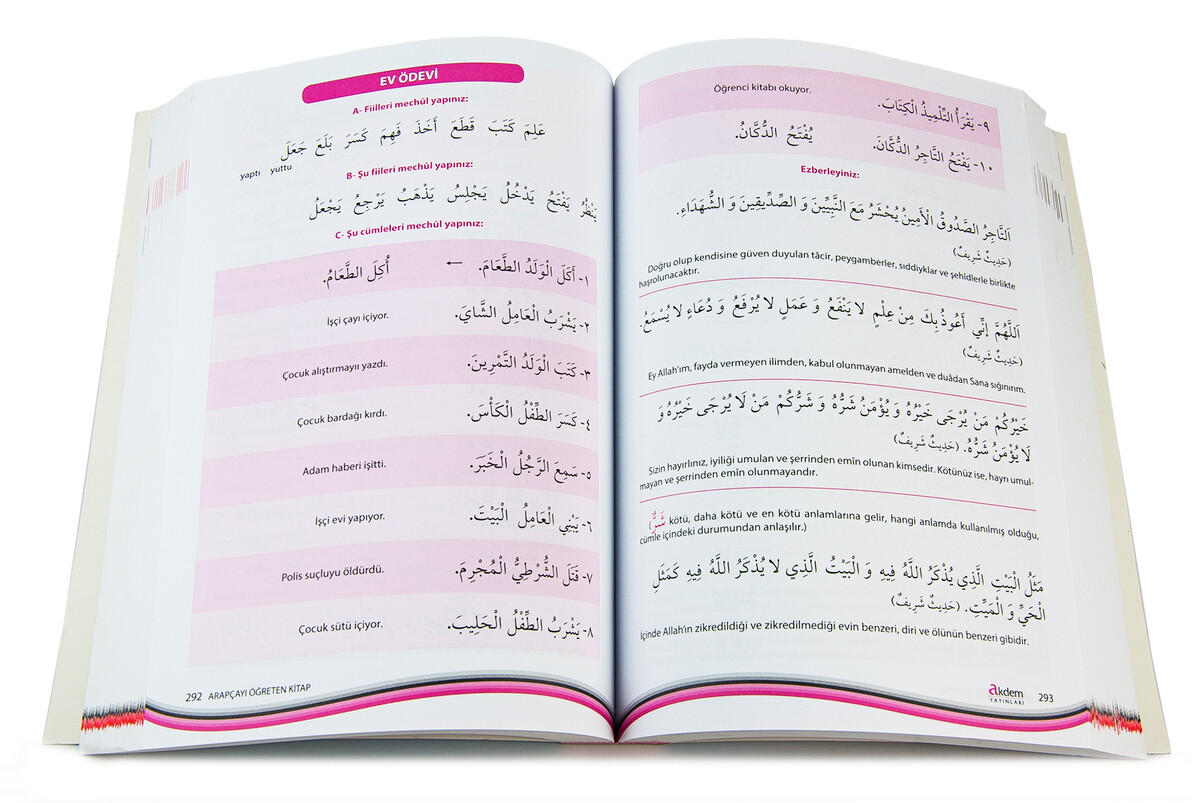 EV ÖDEVİ
A- Fiilleri mechûl yapınız:
عَلِمَ كَتَبَ قَطَعَ أَخَذَ فَهِمَ كَسَرَ بَلَعَ جَعَلَ
yaptı yuttu
B- Şu fiileri mechûl yapınız:
يَنْظُرُ يَفْتَحُ يَدْخُلُ يَجْلِسُ يَذْهَبُ يَرْجِعُ يَجْعَلُ
C- Şu cümleleri mechûl yapınız:
١- أَكَلَ الْوَلَدُ الطَّعَامَ. ← أُكِلَ الطَّعَامُ.
٢- يَشْرَبُ الْعَامِلُ الشَّايَ. İşçi çayı içiyor.
٣- كَتَبَ الْوَلَدُ التَّمْرِينَ. Çocuk alıştırmayıı yazdı.
٤- كَسَرَ الطِّفْلُ الْكَأْسَ. Çocuk bardağı kırdı.
٥- سَمِعَ الرَّجُلُ الْخَبَرَ. Adam haberi işitti.
٦- يَبْنِي الْعَامِلُ الْبَيْتَ. İşçi evi yapıyor.
٧- قَتَلَ الشُّرْطِيُّ الْمُجْرِمَ. Polis suçluyu öldürdü.
٨- يَشْرَبُ الطِّفْلُ الْحَلِيبَ. Çocuk sütü içiyor.
292 ARAPÇAYI ÖĞRETEN KİTAP
٩- يَقْرَأُ التِّلْمِيذُ الْكِتَابَ. Öğrenci kitabı okuyor.
١٠- يَفْتَحُ التَّاجِرُ الدُّكَّانَ. يُفْتَحُ الدُّكَّانُ.
Ezberleyiniz:
اَلتَّاجِرُ الصَّدُوقُ الْأَمِينُ يُحْشَرُ مَعَ النَّبِيِّينَ وَ الصِّدِّيقِينَ وَ الشُّهَدَاءِ.
(حَدِيثٌ شَرِيفٌ)
Doğru olup kendisine güven duyulan tâcir, peygamberler, sıddıyklar ve şehîdlerle birlikte
haşrolunacaktır.
اَللَّهُمَّ إِنِّي أَعُوذُ بِكَ مِنْ عِلْمٍ لَا يَنْفَعُ وَ عَمَلٍ لَا يُرْفَعُ وَ دُعَاءٍ لَا يُسْمَعُ.
(حَدِيثٌ شَرِيفٌ)
Ey Allah'ım, fayda vermeyen ilimden, kabul olunmayan amelden ve duâdan Sana sığınırım.
خَيْرُكُمْ مَنْ يُرْجَى خَيْرُهُ وَ يُؤْمَنُ شَرُّهُ وَ شَرُّكُمْ مَنْ لَا يُرْجَى خَيْرُهُ وَ
لَا يُؤْمَنُ شَرُّهُ. (حَدِيثٌ شَرِيفٌ)
Sizin hayırlınız, iyiliği umulan ve şerrinden emîn olunan kimsedir. Kötünüz ise, hayrı umul-
mayan ve şerrinden emîn olunmayandır.
(شَرٌّ kötü, daha kötü ve en kötü anlamlarına gelir, hangi anlamda kullanılmış olduğu,
cümle içindeki durumundan anlaşılır.)
مَثَلُ الْبَيْتِ الَّذِي يُذْكَرُ اللَّهُ فِيهِ وَ الْبَيْتُ الَّذِي لَا يُذْكَرُ اللَّهُ فِيهِ كَمَثَلِ
الْحَيِّ وَ الْمَيِّتِ. (حَدِيثٌ شَرِيفٌ)
İçinde Allah'ın zikredildiği ve zikredilmediği evin benzeri, diri ve ölünün benzeri gibidir.
akdem
YAYINLARI
293